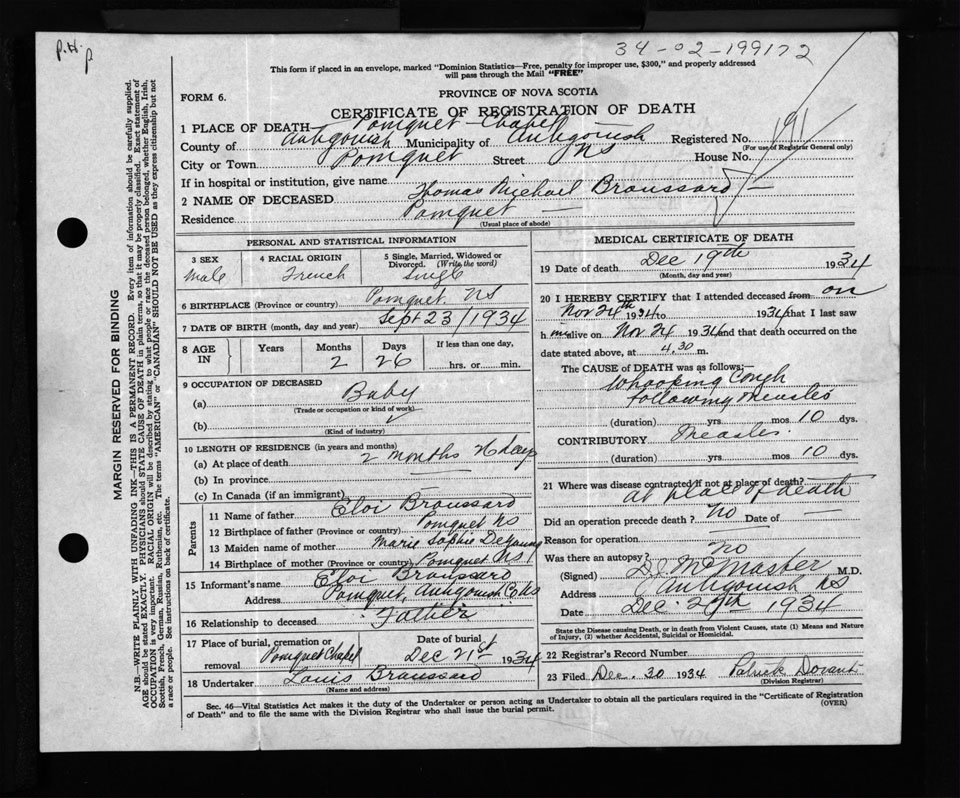 P.H.
P
34-02-199172
This form if placed in an envelope, marked "Dominion Statistics—Free, penalty for improper use, $300," and properly addressed
will pass through the Mail "FREE"
FORM 6.
PROVINCE OF NOVA SCOTIA
CERTIFICATE OF REGISTRATION OF DEATH
1 PLACE OF DEATH Pomquet Chapel
County of Antigonish Municipality of Antigonish Registered No. 191
(For use of Registrar General only)
City or Town Pomquet Street NS House No.
If in hospital or institution, give name
2 NAME OF DECEASED Thomas Michael Broussard
Residence Pomquet
(Usual place of abode)
PERSONAL AND STATISTICAL INFORMATION
3 SEX Male
4 RACIAL ORIGIN French
5 Single, Married, Widowed or Divorced. (Write the word) single
6 BIRTHPLACE (Province or country) Pomquet NS
7 DATE OF BIRTH (month, day and year) Sept 23/1934
8 AGE IN Years Months 2 Days 26 If less than one day, hrs. or min.
9 OCCUPATION OF DECEASED
(a) Baby
(Trade or occupation or kind of work)
(b)
(Kind of industry)
10 LENGTH OF RESIDENCE (in years and months)
(a) At place of death 2 months 26 days
(b) In province
(c) In Canada (if an immigrant)
Parents
11 Name of father Eloi Broussard
12 Birthplace of father (Province or country) Pomquet NS
13 Maiden name of mother Marie Sophie DeYoung
14 Birthplace of mother (Province or country) Pomquet NS
15 Informant's name Eloi Broussard
Address Pomquet Antigonish Co NS
16 Relationship to deceased Father
17 Place of burial, cremation or removal Pomquet Chapel
Date of burial Dec 21st 1934
18 Undertaker Louis Broussard
(Name and address)
MEDICAL CERTIFICATE OF DEATH
19 Date of death Dec 19th 1934
(Month, day and year)
20 I HEREBY CERTIFY that I attended deceased from on
Nov 24th 1934 to 1934 that I last saw
h im alive on Nov 24 1934 and that death occurred on the
date stated above, at 4.30 m.
The CAUSE of DEATH was as follows:—
Whooping Cough
following Measles
(duration) yrs mos 10 dys.
CONTRIBUTORY Measles
(duration) yrs mos 10 dys.
21 Where was disease contracted if not at place of death?
at place of death
Did an operation precede death? No Date of
Reason for operation
Was there an autopsy? no
(Signed) McMaster M.D.
Address Antigonish NS
Date Dec. 29th 1934
State the Disease causing Death, or in death from Violent Causes, state (1) Means and Nature
of Injury, (2) whether Accidental, Suicidal or Homicidal.
22 Registrar's Record Number
23 Filed Dec. 30 1934 Patrick Dorant
(Division Registrar)
Sec. 46—Vital Statistics Act makes it the duty of the Undertaker or person acting as Undertaker to obtain all the particulars required in the "Certificate of Registration
of Death" and to file the same with the Division Registrar who shall issue the burial permit.
(OVER)
MARGIN RESERVED FOR BINDING
N.B.—WRITE PLAINLY WITH UNFADING INK—THIS IS A PERMANENT RECORD. Every item of information should be carefully supplied.
AGE should be stated EXACTLY. PHYSICIANS should STATE CAUSE OF DEATH in plain terms, so that it may be properly classified. Exact statement of
OCCUPATION is very important. RACIAL ORIGIN will be described by stating to what people or race the deceased person belonged, whether English, Irish,
Scottish, French, German, Russian, Ruthenian, etc. The terms "AMERICAN" or "CANADIAN" SHOULD NOT BE USED as they express citizenship but not
a race or people. See instructions on back of certificate.